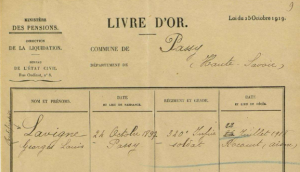 MINISTÈRE
DES PENSIONS.
LIVRE D'OR.
Loi du 25 Octobre 1919.
DIRECTION
DE LA LIQUIDATION.
COMMUNE DE Passy
SERVICE
DE L'ÉTAT CIVIL
DÉPARTEMENT DE Haute Savoie
NOM ET PRÉNOMS.
DATE
ET LIEU DE NAISSANCE.
RÉGIMENT ET GRADE.
DATE
ET LIEU
Lavigne
Georges Louis
24 Octobre 1897
Passy
320e Infie
soldat
23
Juillet 1918